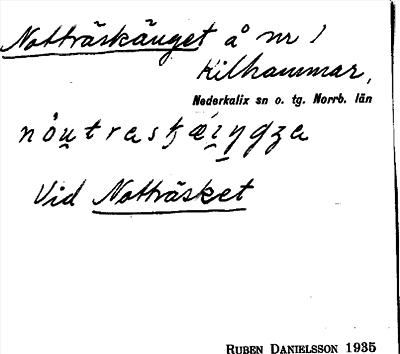 Notträskänget å nr 1
Kilhammar,
Nederkalix sn o. tg. Norrb. län
Vid Notträsket
RUBEN DANIELSSON 1935